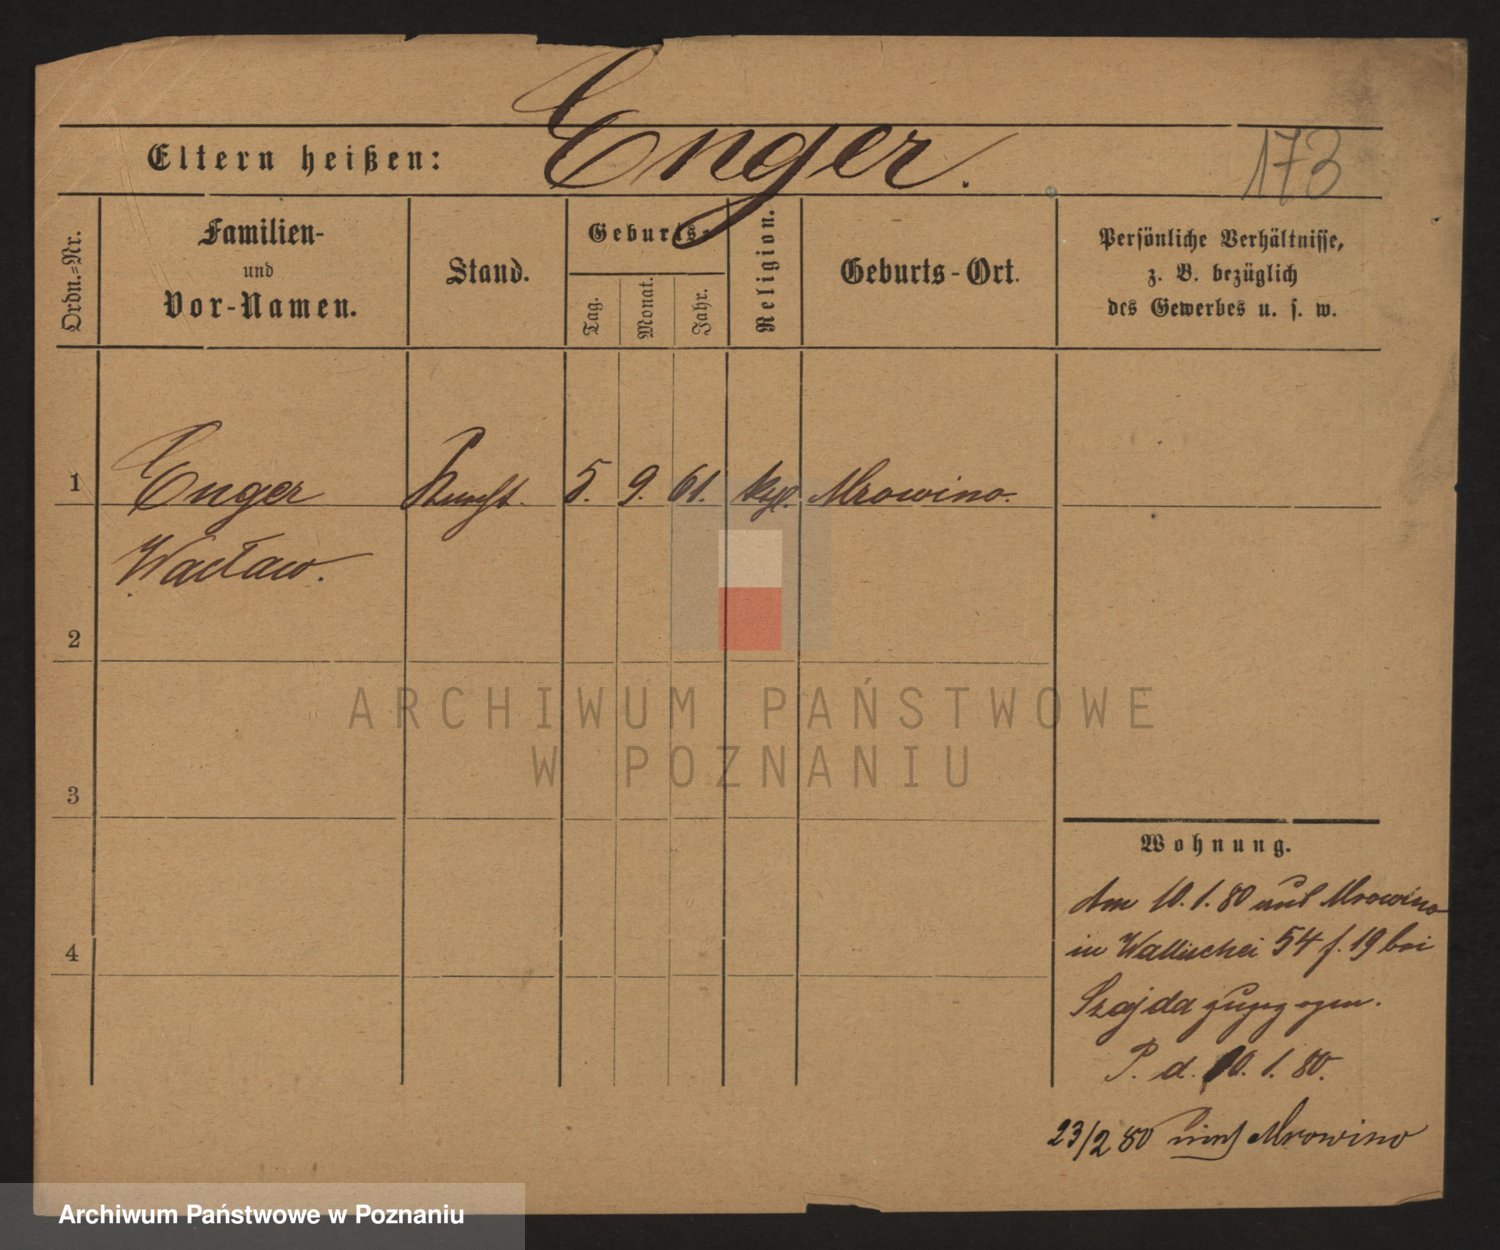 Enger.
Eltern heißen:
173
Ordn.-Nr.
Familien-
und
Vor-Namen.
Stand.
Geburts-
Tag.
Monat.
Jahr.
Religion.
Geburts-Ort.
Persönliche Verhältnisse,
z. B. bezüglich
des Gewerbes u. s. w.
1
Enger
5.
9.
61.
Mrowino.
Wacław.
2
3
4
Wohnung.
Am 10. 1. 80 aus Mrowino
in Wallischei 54 f. 19 bei
Szajda zugezogen.
P. d. 10. 1. 80.
23/2 80 Mrowino
ARCHIWUM PAŃSTWOWE
W POZNANIU
Archiwum Państwowe w Poznaniu